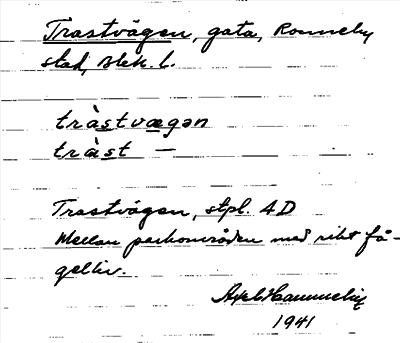 Trastvägen, gata, Ronneby
stad, Blek. l.
tràstvægən
tràst —
Trastvägen, stpl. 4D
Mellan parkområden med rikt få-
gelliv.
Axel Hammelin
1941